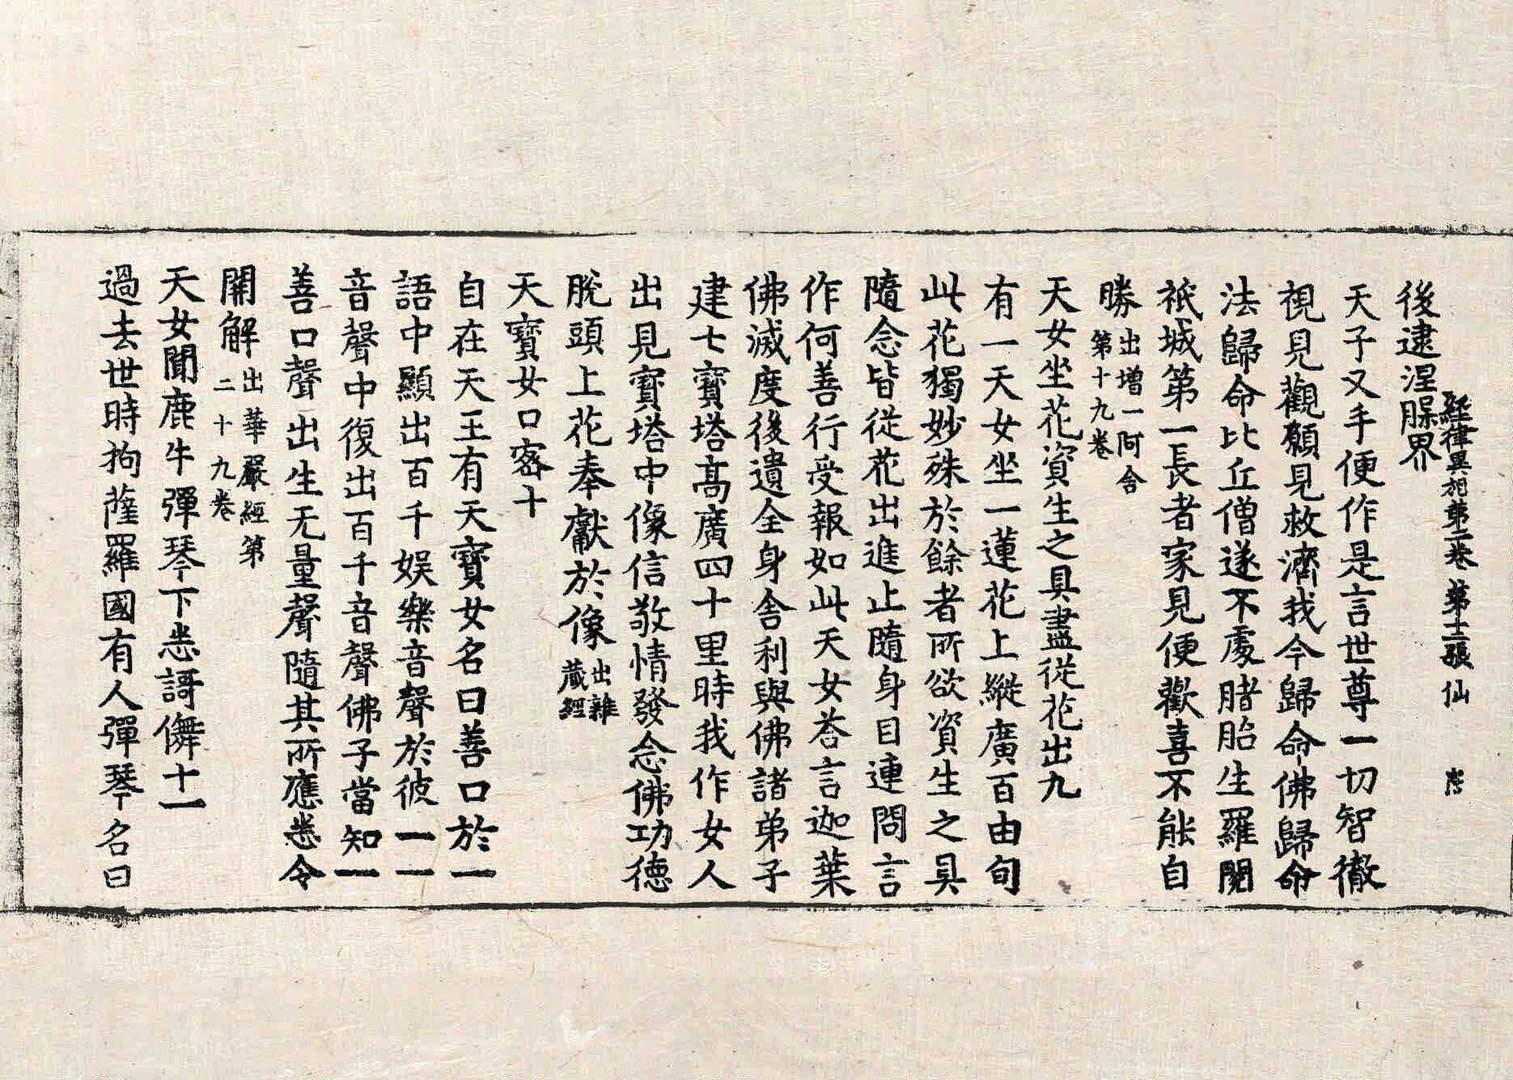 經律異相第二卷 第十二張 仙 㐬
後逮涅槃界
天子叉手便作是言世尊一切智徹
視見觀願見救濟我今歸命佛歸命
法歸命比丘僧遂不處豬胎生羅閱
祇城第一長者家見便歡喜不能自
勝 出增一阿含第十九卷
天女坐花資生之具盡從花出九
有一天女坐一蓮花上縱廣百由旬
此花獨妙殊於餘者所欲資生之具
隨念皆從花出進止隨身目連問言
作何善行受報如此天女荅言迦葉
佛滅度後遺全身舍利與佛諸弟子
建七寶塔高廣四十里時我作女人
出見寶塔中像信敬情發念佛功德
脫頭上花奉獻於像 出雜藏經
天寶女口密十
自在天王有天寶女名曰善口於一
語中顯出百千娛樂音聲於彼一一
音聲中復出百千音聲佛子當知一
善口聲出生无量聲隨其所應悉令
開解 出華嚴經第二十九卷
天女聞鹿牛彈琴下悉謌儛十一
過去世時拘薩羅國有人彈琴名曰